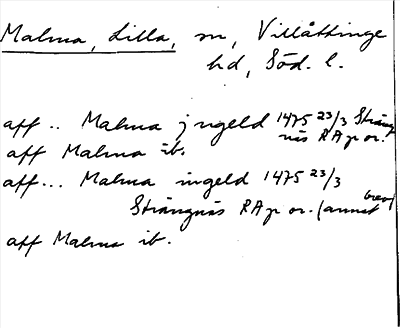 Malma, Lilla, sn, Villåttinge
hd, Söd. l.
aff .. Malma j ngeld 1475 23/3 Sträng
näs RAp or.
aff Malma ib.
aff... Malma ingeld 1475 23/3
Strängnäs RAp or. (annat brev)
aff Malma ib.